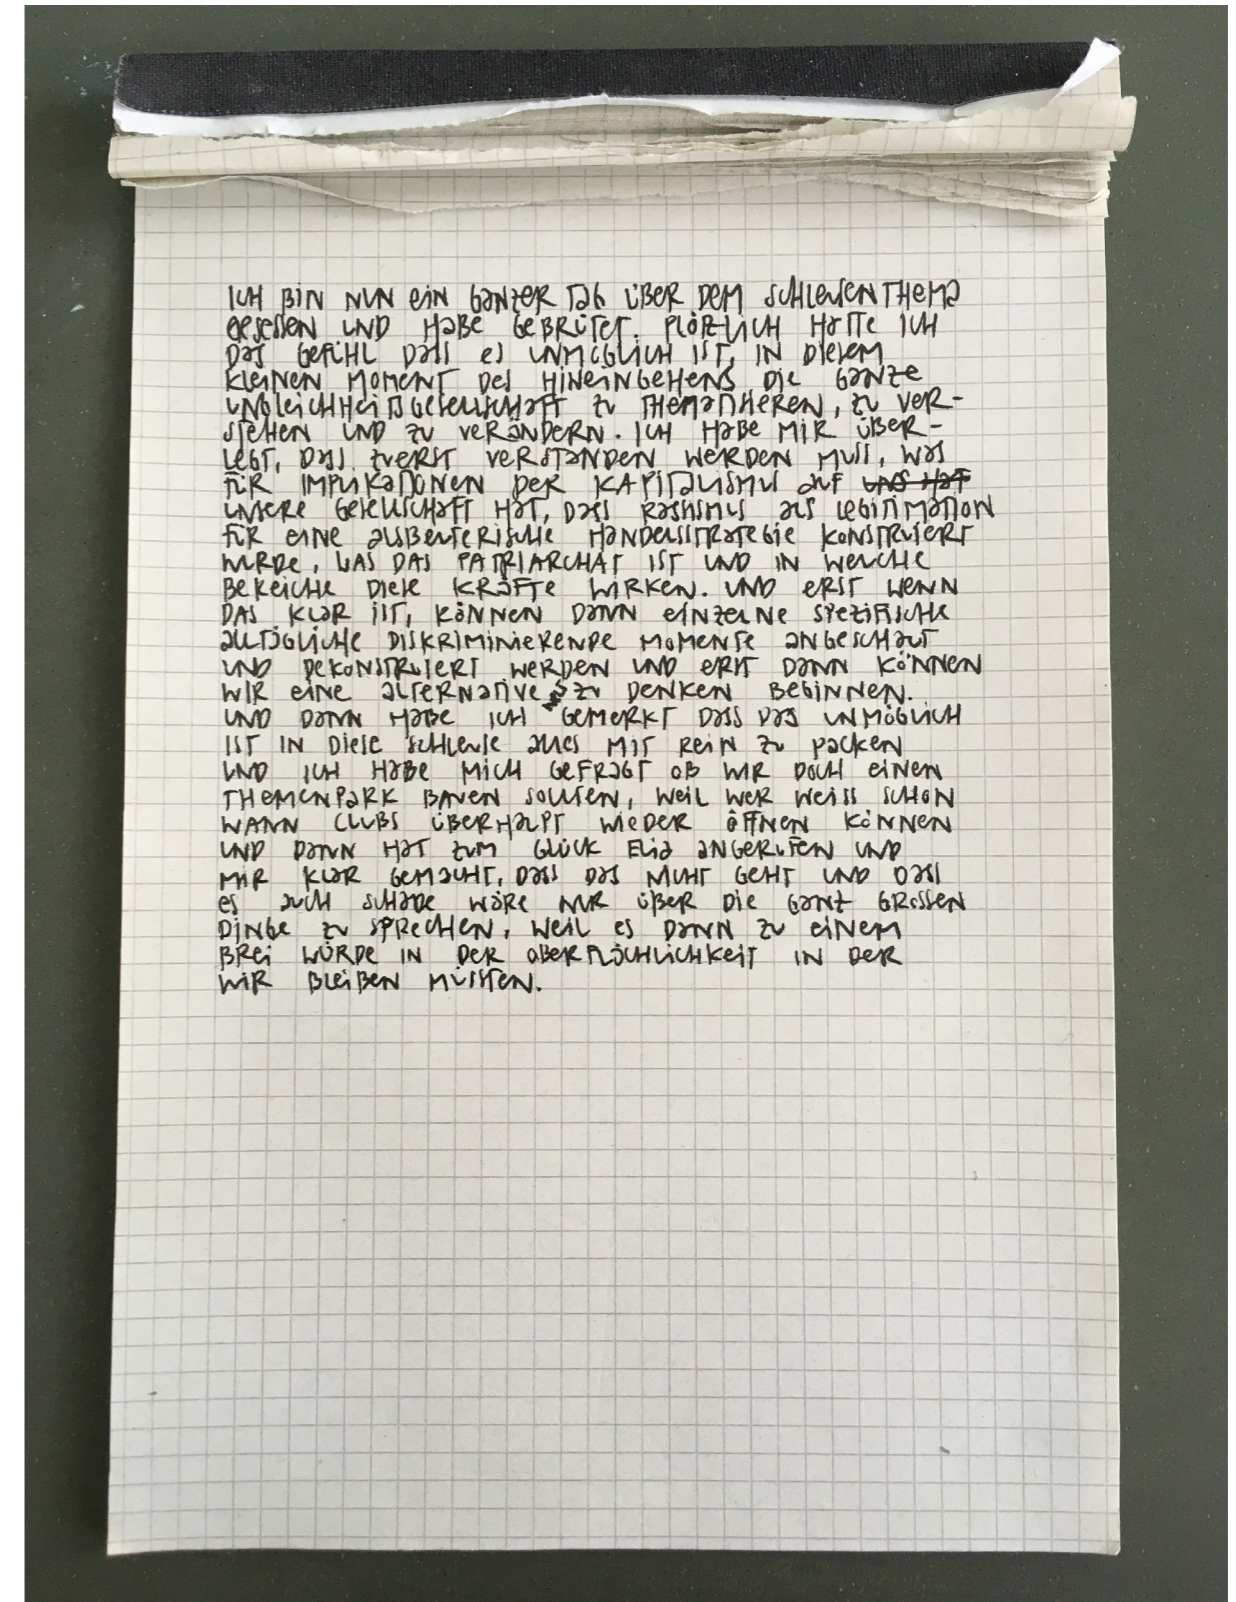 ICH BIN NUN EIN GANZER TAG ÜBER DEM SCHLEUSENTHEMA
GESESSEN UND HABE GEBRÜTET. PLÖTZLICH HATTE ICH
DAS GEFÜHL DASS ES UNMÖGLICH IST, IN DIESEM
KLEINEN MOMENT DES HINEINGEHENS DIE GANZE
UNGLEICHHEITSGESELLSCHAFT ZU THEMATISIEREN, ZU VER-
STEHEN UND ZU VERÄNDERN. ICH HABE MIR ÜBER-
LEGT, DASS ZUERST VERSTANDEN WERDEN MUSS, WAS
FÜR IMPLIKATIONEN DER KAPITALISMUS AUF UNS HAT
UNSERE GESELLSCHAFT HAT, DASS RASSISMUS ALS LEGITIMATION
FÜR EINE AUSBEUTERISCHE HANDELSSTRATEGIE KONSTRUIERT
WURDE, WAS DAS PATRIARCHAT IST UND IN WELCHE
BEREICHE DIESE KRÄFTE WIRKEN. UND ERST WENN
DAS KLAR IST, KÖNNEN DANN EINZELNE SPEZIFISCHE
ALLTÄGLICHE DISKRIMINIERENDE MOMENTE ANGESCHAUT
UND DEKONSTRUIERT WERDEN UND ERST DANN KÖNNEN
WIR EINE ALTERNATIVE ZU DENKEN BEGINNEN.
UND DANN HABE ICH GEMERKT DASS DAS UNMÖGLICH
IST IN DIESE SCHLEUSE ALLES MIT REIN ZU PACKEN
UND ICH HABE MICH GEFRAGT OB WIR DOCH EINEN
THEMENPARK BAUEN SOLLTEN, WEIL WER WEISS SCHON
WANN CLUBS ÜBERHAUPT WIEDER ÖFFNEN KÖNNEN
UND DANN HAT ZUM GLÜCK ELIA ANGERUFEN UND
MIR KLAR GEMACHT, DASS DAS NICHT GEHT UND DASS
ES AUCH SCHADE WÄRE NUR ÜBER DIE GANZ GROSSEN
DINGE ZU SPRECHEN, WEIL ES DANN ZU EINEM
BREI WÜRDE IN DER OBERFLÄCHLICHKEIT IN DER
WIR BLEIBEN MÜSSTEN.